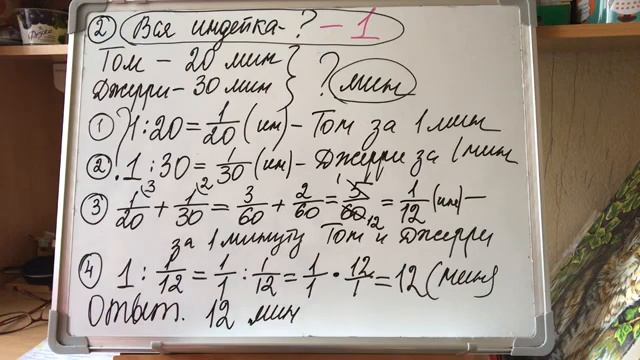 ② Вся индейка - ? - 1
Том - 20 мин
Джерри - 30 мин } ? мин
① 1:20 = 1/20 (ин) - Том за 1 мин
②. 1:30 = 1/30 (ин) - Джерри за 1 мин
③ 1/20 + 1/30 = 3/60 + 2/60 = 5/60 = 1/12 (ин) -
за 1 минуту Том и Джерри
④ 1 : 1/12 = 1/1 : 1/12 = 1/1 · 12/1 = 12 (мин)
Ответ. 12 мин